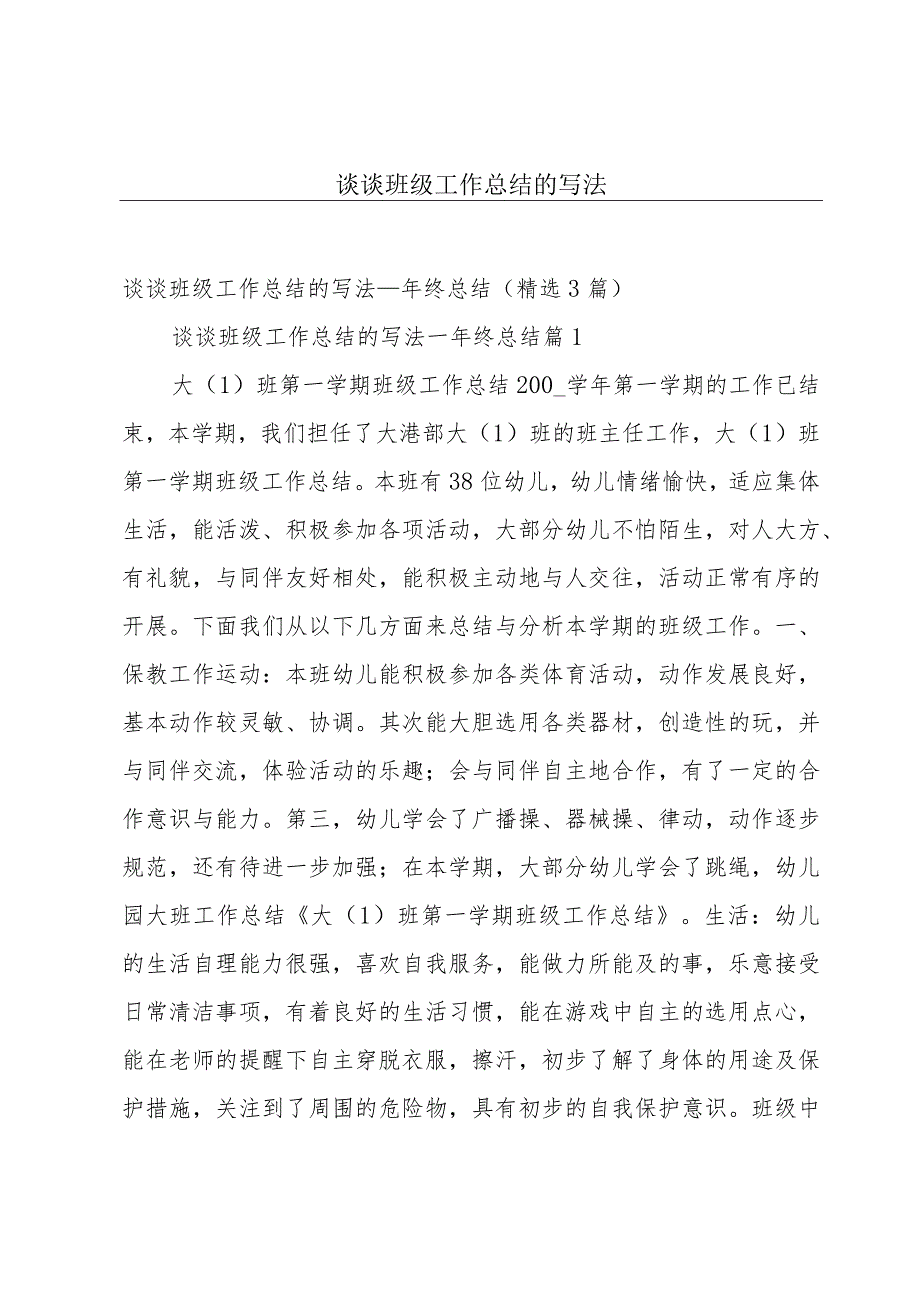 谈谈班级工作总结的写法
谈谈班级工作总结的写法—年终总结（精选3篇）
谈谈班级工作总结的写法一年终总结篇1
大（1）班第一学期班级工作总结200_学年第一学期的工作已结
束，本学期，我们担任了大港部大（1）班的班主任工作，大（1）班
第一学期班级工作总结。本班有38位幼儿，幼儿情绪愉快，适应集体
生活，能活泼、积极参加各项活动，大部分幼儿不怕陌生，对人大方、
有礼貌，与同伴友好相处，能积极主动地与人交往，活动正常有序的
开展。下面我们从以下几方面来总结与分析本学期的班级工作。一、
保教工作运动：本班幼儿能积极参加各类体育活动，动作发展良好，
基本动作较灵敏、协调。其次能大胆选用各类器材，创造性的玩，并
与同伴交流，体验活动的乐趣；会与同伴自主地合作，有了一定的合
作意识与能力。第三，幼儿学会了广播操、器械操、律动，动作逐步
规范，还有待进一步加强；在本学期，大部分幼儿学会了跳绳，幼儿
园大班工作总结《大（1）班第一学期班级工作总结》。生活：幼儿
的生活自理能力很强，喜欢自我服务，能做力所能及的事，乐意接受
日常清洁事项，有着良好的生活习惯，能在游戏中自主的选用点心，
能在老师的提醒下自主穿脱衣服，擦汗，初步了解了身体的用途及保
护措施，关注到了周围的危险物，具有初步的自我保护意识。班级中